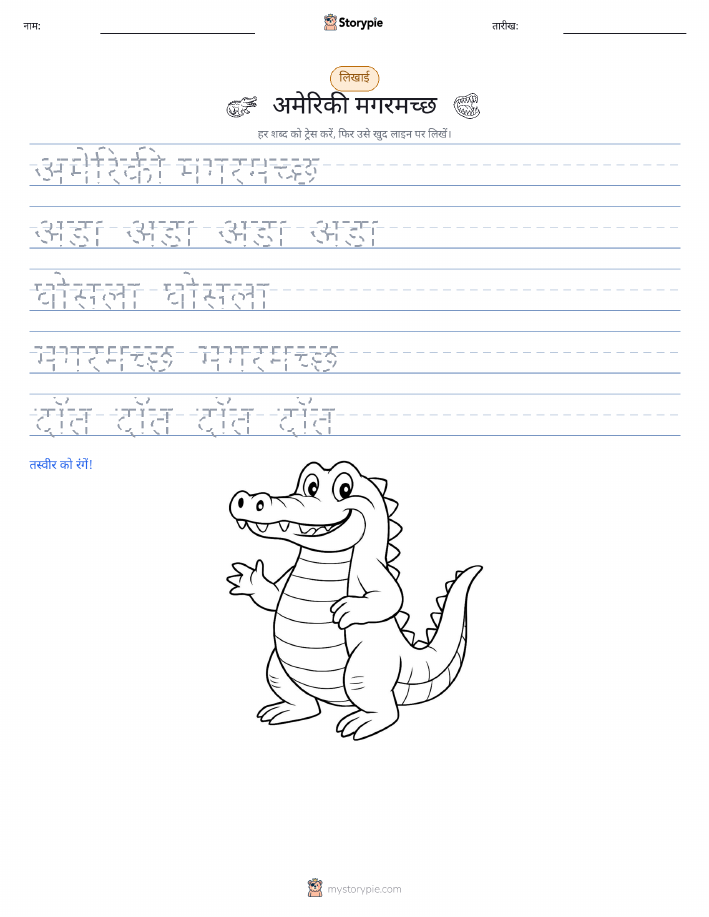 नाम:
Storypie
तारीख:
लिखाई
अमेरिकी मगरमच्छ
हर शब्द को ट्रेस करें, फिर उसे खुद लाइन पर लिखें।
अमेरिकी मगरमच्छ
अंडा अंडा अंडा अंडा
घोंसला घोंसला
मगरमच्छ मगरमच्छ
दाँत दाँत दाँत दाँत
तस्वीर को रंगें!
mystorypie.com